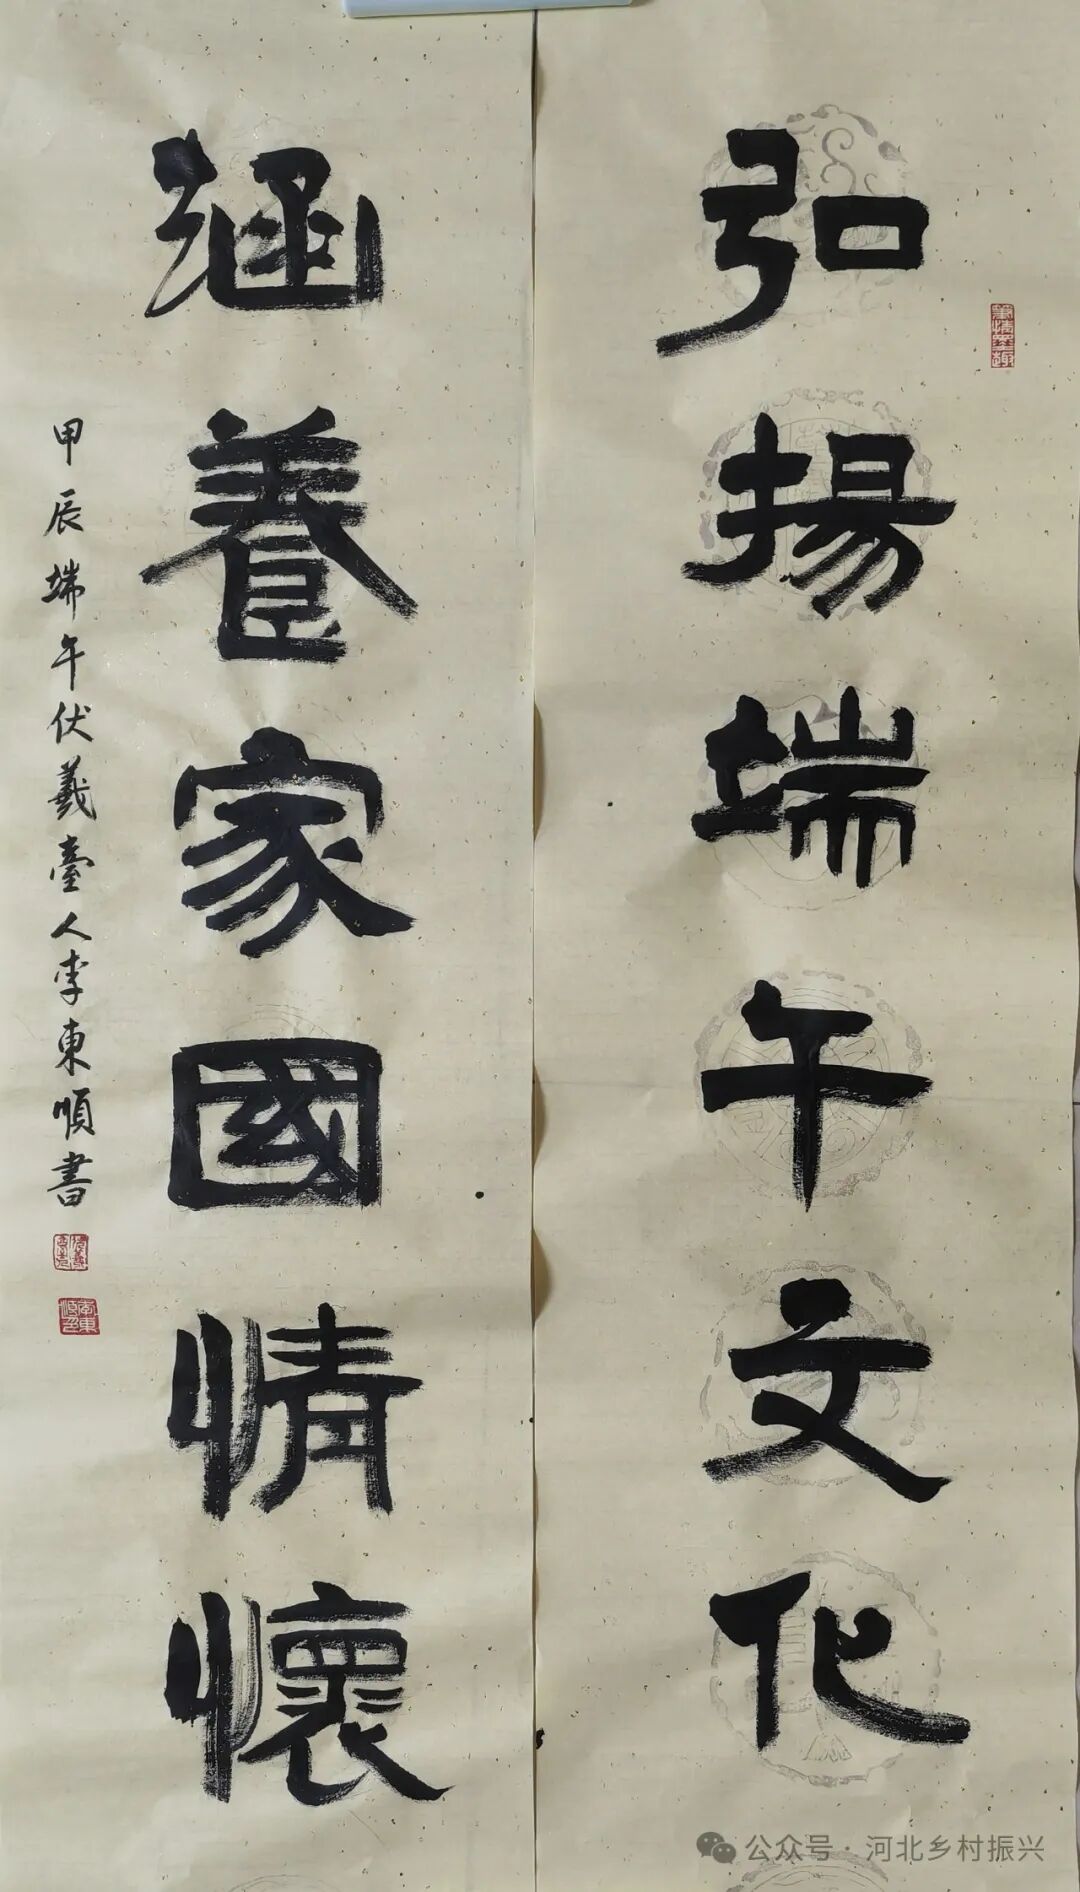 弘揚端午文化
涵養家國情懷
甲辰端午伏羲臺人李東順書
公众号·河北乡村振兴